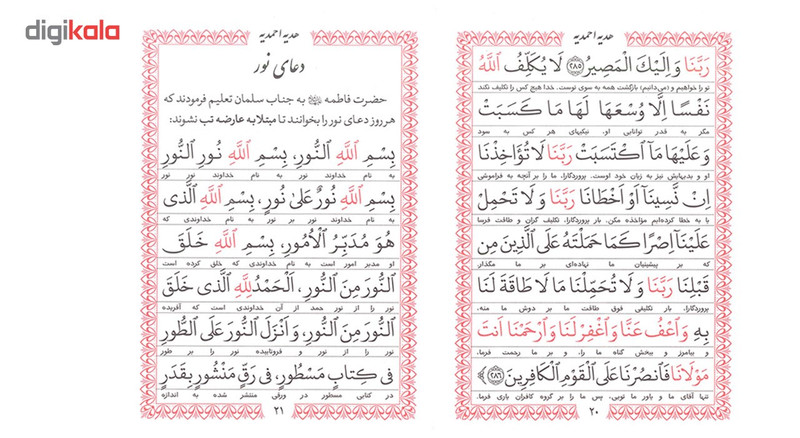 digikala
هدیه احمدیه
رَبَّنَا وَ اِلَیْكَ الْمَصیرُ ﴿۲۸۵﴾ لَا یُكَلِّفُ اللّٰهُ
تو را خواهیم و (می‌دانیم) بازگشت همه به سوی توست. خدا هیچ کس را تکلیف نکند
نَفْسًا اِلَّا وُسْعَهَا لَهَا مَا كَسَبَتْ
مگر به قدر توانایی او. نیکیهای هر کس به سود
وَ عَلَیْهَا مَا اكْتَسَبَتْ رَبَّنَا لَا تُؤَاخِذْنَا
او و بدیهایش نیز به زیان خود اوست. پروردگارا، ما را بر آنچه به فراموشی
اِنْ نَسینَا اَوْ اَخْطَانَا رَبَّنَا وَ لَا تَحْمِلْ
یا به خطا کرده‌ایم مؤاخذه مکن. بار پروردگارا، تکلیف گران و طاقت فرسا
عَلَیْنَا اِصْرًا كَمَا حَمَلْتَهُ عَلَی الَّذینَ مِنْ
که بر پیشینیان ما نهاده‌ای بر ما مگذار.
قَبْلِنَا رَبَّنَا وَ لَا تُحَمِّلْنَا مَا لَا طَاقَةَ لَنَا
پروردگارا، بار تکلیفی فوق طاقت ما بر دوش ما منه،
بِهِ وَاعْفُ عَنَّا وَاغْفِرْ لَنَا وَارْحَمْنَا اَنْتَ
و بیامرز و ببخش گناه ما را، و بر ما رحمت فرما،
مَوْلَانَا فَانْصُرْنَا عَلَی الْقَوْمِ الْكَافِرینَ ﴿۲۸۶﴾
تنها آقای ما و یاور ما تویی، پس ما را بر گروه کافران یاری فرما.
۲۰
هدیه احمدیه
دعای نور
حضرت فاطمه به جناب سلمان تعلیم فرمودند که
هر روز دعای نور را بخوانند تا مبتلا به عارضه تب نشوند:
بِسْمِ اللّٰهِ النُّورِ، بِسْمِ اللّٰهِ نُورِ النُّورِ
به نام خداوند نور به نام خداوند نور نور
بِسْمِ اللّٰهِ نُورٌ عَلیٰ نُورٍ، بِسْمِ اللّٰهِ الَّذی
به نام خداوند نور بر نور به نام خداوندی که
هُوَ مُدَبِّرُ الْاُمُورِ، بِسْمِ اللّٰهِ خَلَقَ
او مدبر امور است به نام خداوندی که خلق کرده است
النُّورَ مِنَ النُّورِ، اَلْحَمْدُ لِلّٰهِ الَّذی خَلَقَ
نور را از نور حمد از آن خداوندی است که آفریده
النُّورَ مِنَ النُّورِ، وَ اَنْزَلَ النُّورَ عَلَی الطُّورِ
نور را از نور و فروباریده نور را بر طور
فی كِتَابٍ مَسْطُورٍ، فی رَقٍّ مَنْشُورٍ بِقَدَرٍ
در کتابی مسطور در ورقی منتشر شده به اندازه
۲۱